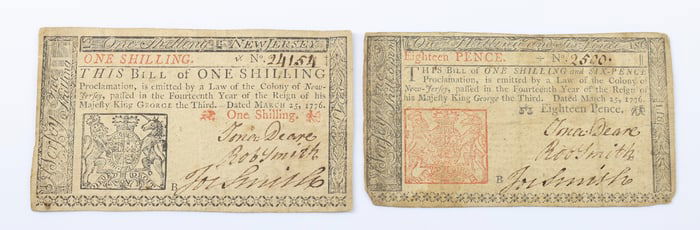 One Shilling NEW JERSEY
ONE SHILLING. No. 24154
THIS BILL of ONE SHILLING
Proclamation, is emitted by a Law of the Colony of New-
Jersey, passed in the Fourteenth Year of the Reign of his
Majesty King GEORGE the Third. Dated MARCH 25, 1776.
One Shilling.
Jona Deare
Robt Smith
B Jos Smith
Eighteen PENCE. No. 2580.
THIS Bill of ONE SHILLING and SIX-PENCE
Proclamation, is emitted by a Law of the Colony of
New-Jersey, passed in the Fourteenth Year of the Reign of
his Majesty King George the Third. Dated March 25, 1776.
Eighteen Pence.
Jona Deare
Robt Smith
B Jos Smith